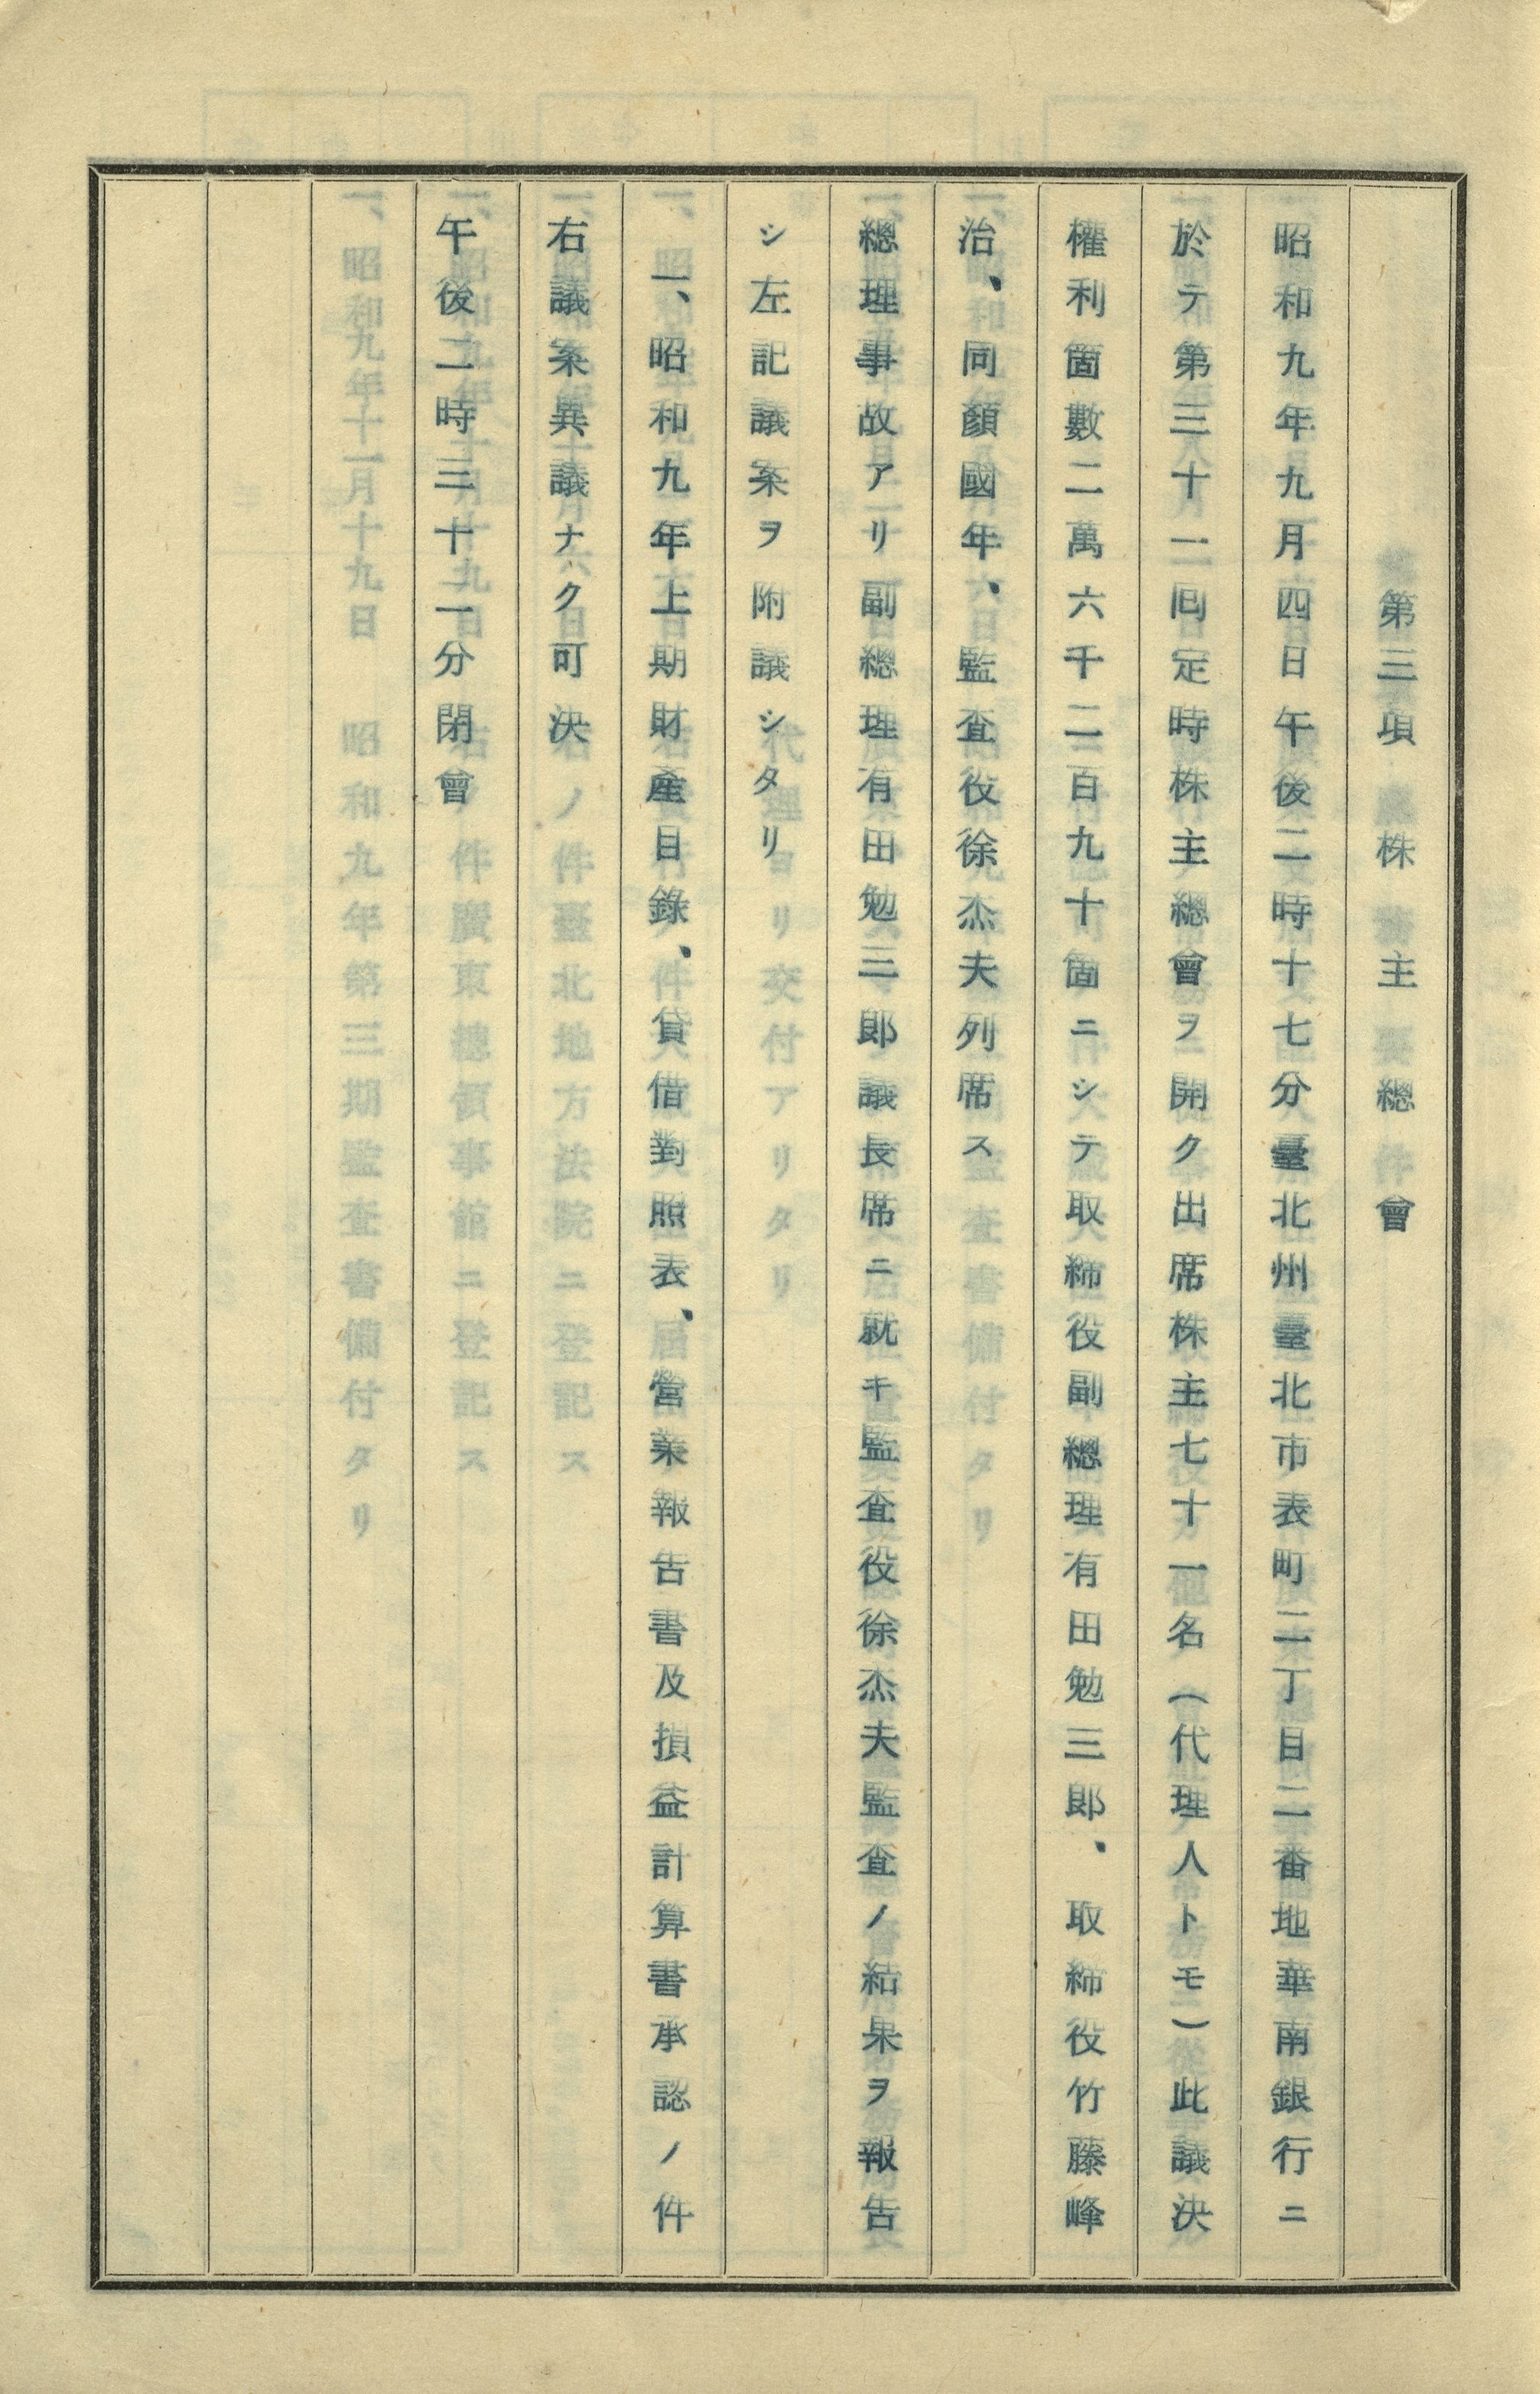 第三項株主總會
昭和九年九月四日午後二時十七分臺北州臺北市表町二丁目二番地華南銀行ニ
於テ第三十一囘定時株主總會ヲ開ク出席株主七十一名(代理人トモ)此議決
權利箇數二萬六千二百九十箇ニシテ取締役副總理有田勉三郎、取締役竹藤峰
治、同顏國年、監査役徐杰夫列席ス
總理事故アリ副總理有田勉三郎議長席ニ就キ監査役徐杰夫監査ノ結果ヲ報告
シ左記議案ヲ附議シタリ
一、昭和九年上期財產目錄、貸借對照表、營業報告書及損益計算書承認ノ件
右議案異議ナク可決
午後二時三十一分閉會